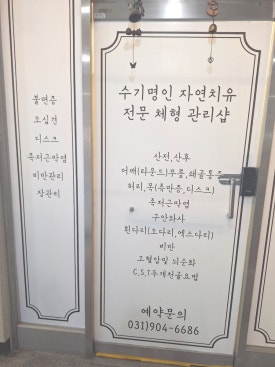 불면증
오십견
디스크
족저근막염
비만관리
장관리
수기명인 자연치유
전문 체형 관리샵
산전,산후
어깨(라운드)무릎,쇄골통증
허리,목(측만증,디스크)
족저근막염
구안와사
휜다리(오다리,엑스다리)
비만
고혈압및 뇌순화
C.S.T두개천골요법
예약문의
031)904-6686